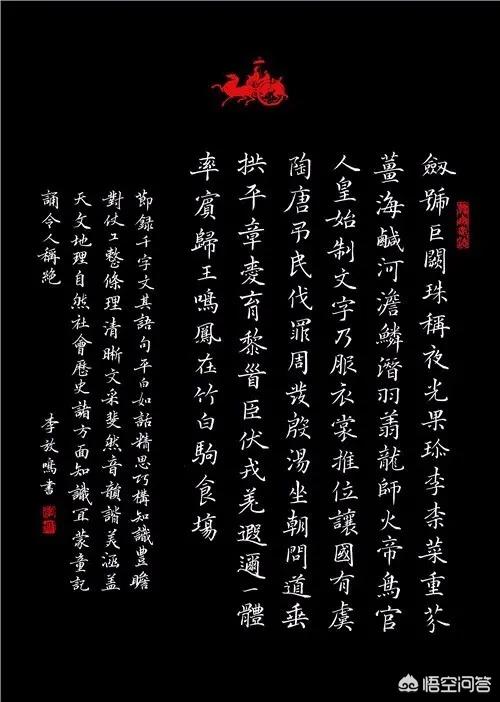 劔號巨闕珠稱夜光果珍李柰菜重芥
薑海鹹河澹鱗潛羽翔龍師火帝鳥官
人皇始制文字乃服衣裳推位讓國有虞
陶唐吊民伐罪周發殷湯坐朝問道垂
拱平章愛育黎首臣伏戎羌遐邇一體
率賓歸王鳴鳳在竹白駒食場
節録千字文其語句平白如話精思巧構知識豊贍
對仗工整條理清晰文采斐然音韻諧美涵蓋
天文地理自然社會歷史諸方面知識宜蒙童記
誦令人稱絶
李放鳴書
悟空问答